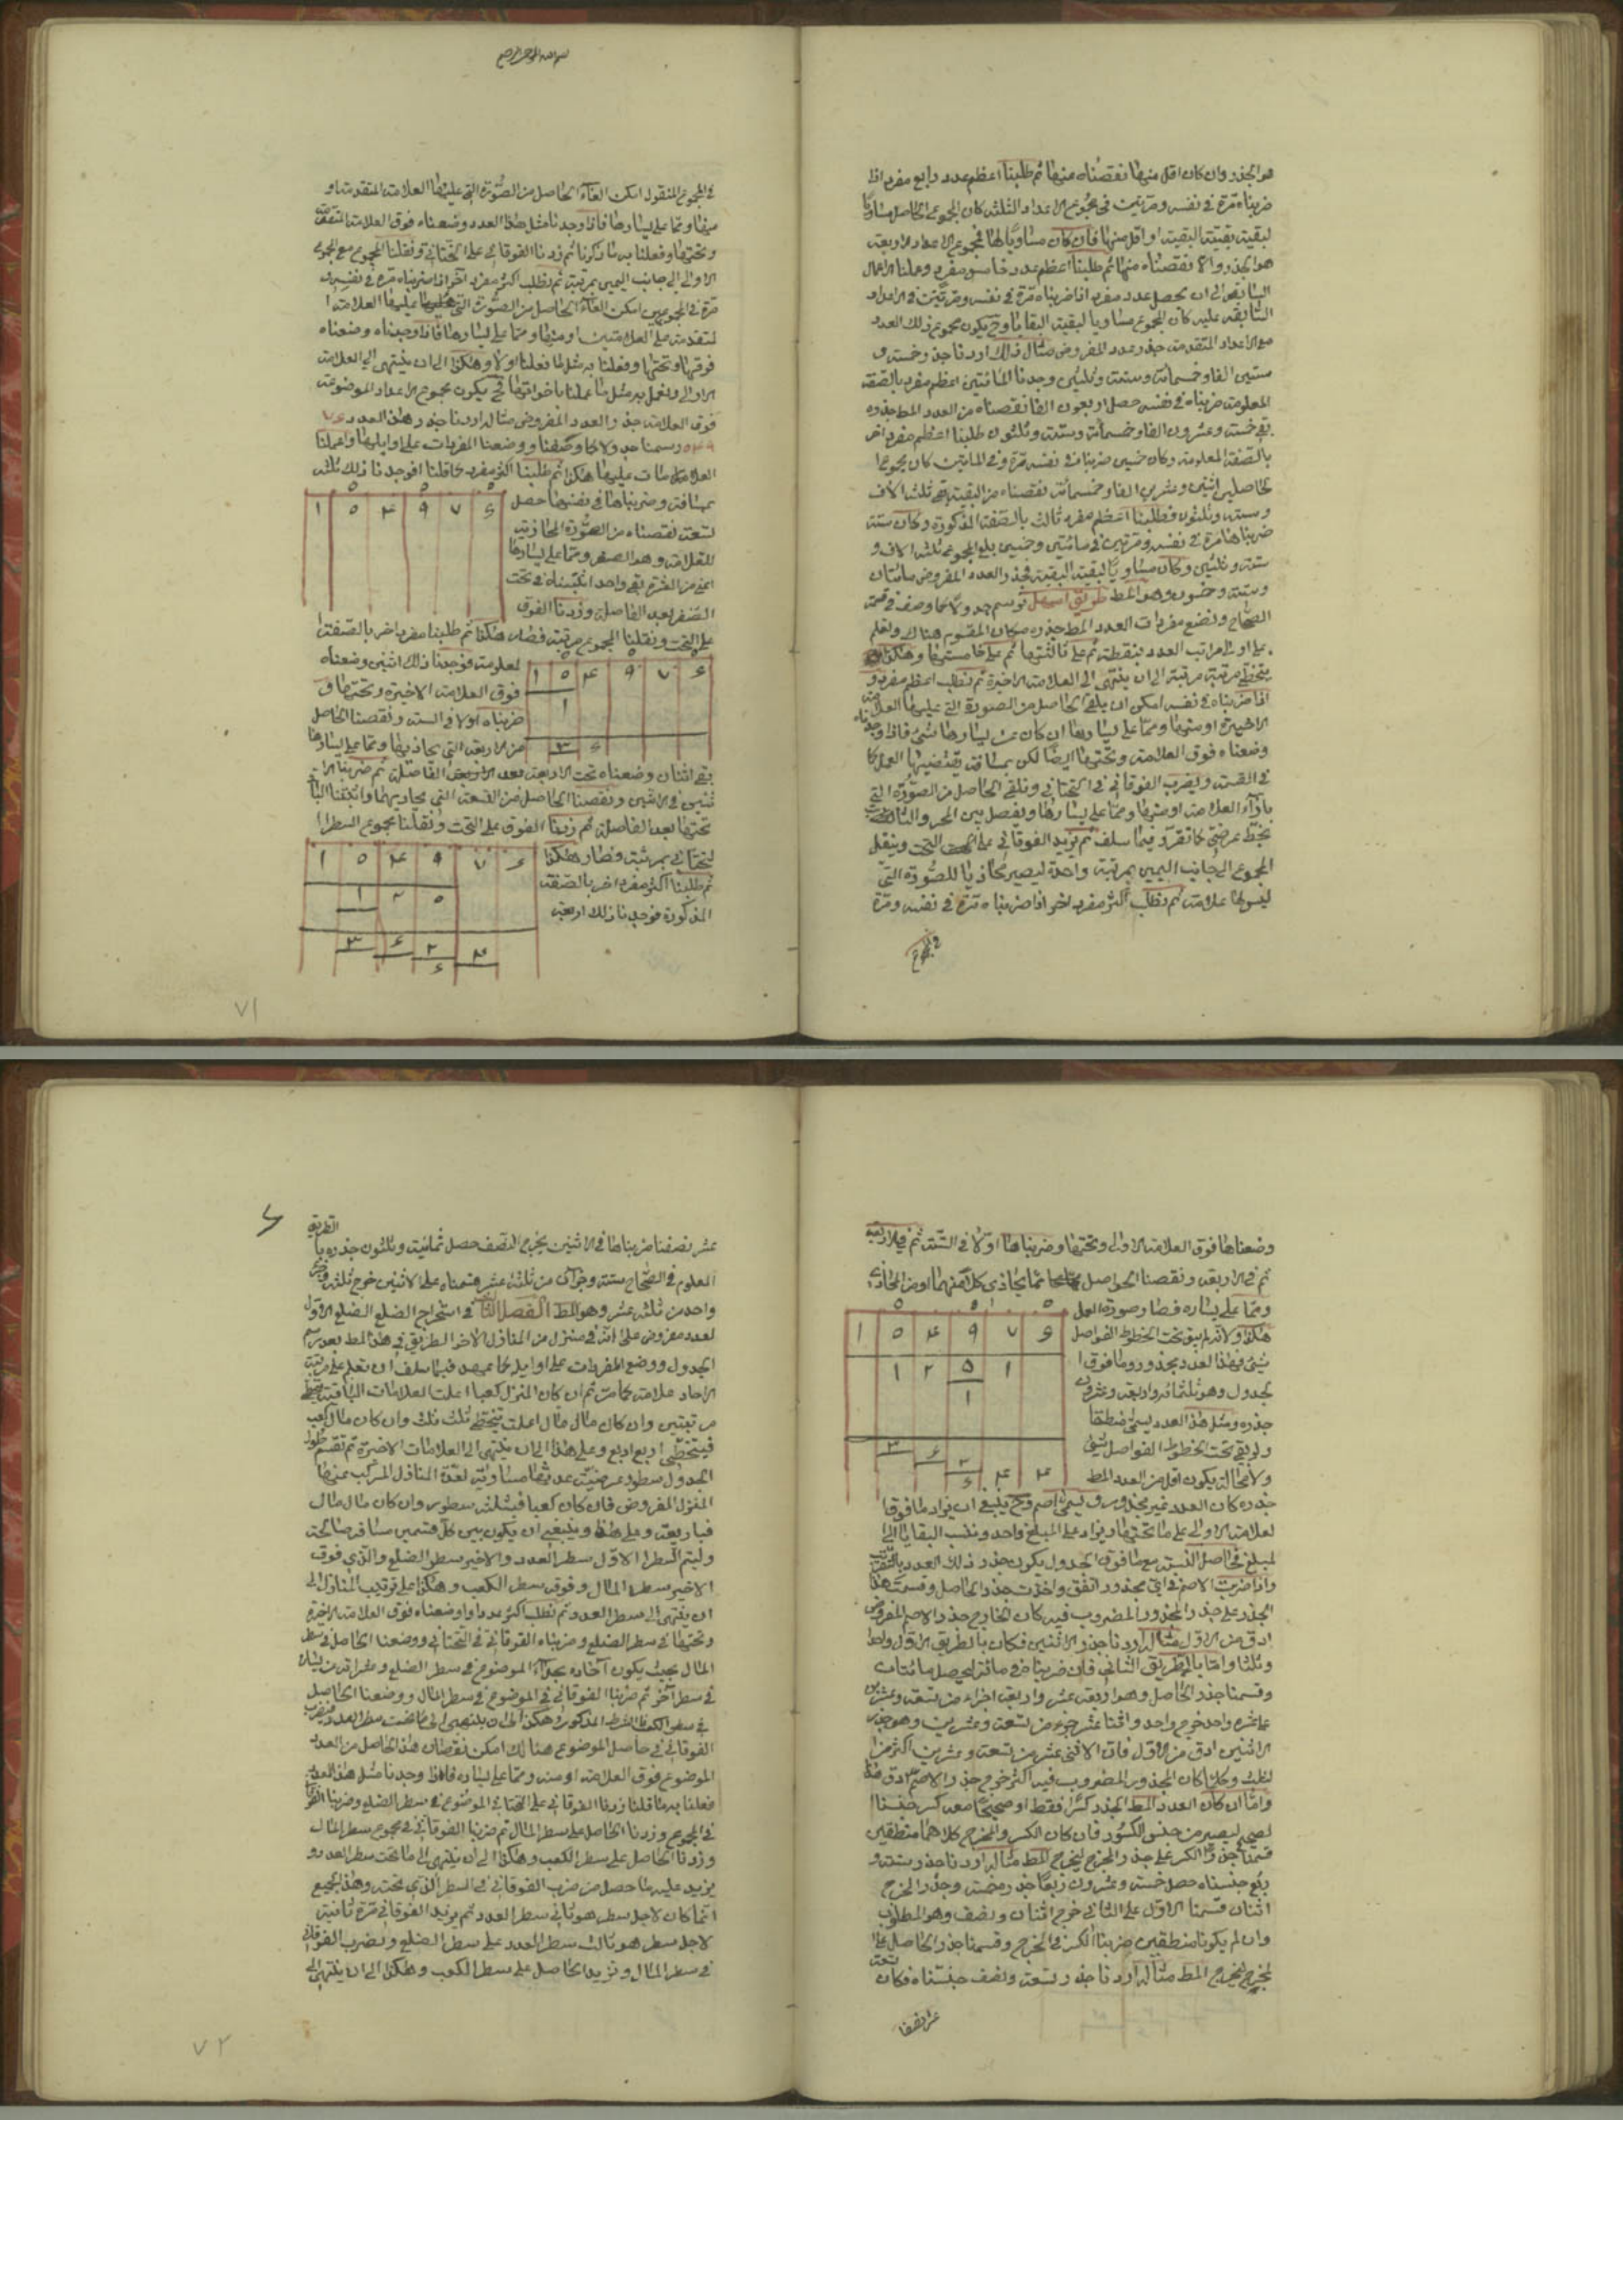 هو الجذر وان كان اقل منها نقصناه منها ثم طلبنا اعظم عدد رابع مفرد اذا
ضربناه مرة في نفسه ومرتين في مجموع الاعداد الثلثة كان المجموع الحاصل مساويا
لبقية بقية البقية او اقل منها فان كان مساويا لها فمجموع الاعداد الاربعة
هو الجذر والا نقصناه منها ثم طلبنا اعظم عدد خامس مفرد وعملنا الاعمال
السابقة الى ان يحصل عدد مفرد اذا ضربناه مرة في نفسه ومرتين في الاعداد
السابقة عليه كان المجموع مساويا لبقية البقايا وح يكون مجموع ذلك العدد
مع الاعداد المتقدمة جذر عدد المفروض مثال ذلك اردنا جذر خمسة و
ستين الفا وخمسمائة وستة وثلثين وجدنا المائتين اعظم مفرد بالصفة
المعلومة ضربناه في نفسه حصل اربعون الفا نقصناه من العدد المط جذره
بقي خمسة وعشرون الفا وخمسمائة وستة وثلثون طلبنا اعظم مفرد اخر
بالصفة المعلومة وكان خمسين ضربناه في نفسه مرة وفي المائتين كان مجموع ا
لحاصلين اثنين وعشرين الفا وخمسمائة نقصناه من البقية بقي ثلثة الاف
وستة وثلثون فطلبنا اعظم مفرد ثالث بالصفة المذكورة وكان ستة
ضربناها مرة في نفسه ومرتين في مائتين وخمسين بلغ المجموع ثلثة الاف و
ستة وثلثين وكان مساويا لبقية البقية فجذر العدد المفروض مائتان
وستة وخمسون وهو المط طريق اسهل نرسم جدولا كما وصف في قسمة
الصحاح ونضع مفردات العدد المط جذره مكان المقسوم هناك ونعلم
على اول مراتب العدد بنقطة ثم على ثالثتها ثم على خامستها وهكذا
يتخطى مرتبة مرتبة الى ان ينتهي الى العلامة الاخيرة ثم نطلب اعظم مفرد و
اذا ضربناه في نفسه امكن ان يلقى الحاصل من الصورة التي عليها العلامة
الاخيرة او منها ومما على يسارها ان كان عن يسارها شئ فاذا وجدناه
وضعناه فوق العلامة وتحتها ايضا لكن بمسافة يقتضيها العمل كا
في القسمة ونضرب الفوقاني في التحتاني ونلقي الحاصل من الصورة التي
بازاء العلامة او منها ومما على يسارها ونفصل بين المحو والثابت
بخط عرضي كما تقرر فيما سلف ثم نزيد الفوقاني على التحت وينقل
المجموع الى جانب اليمين بمرتبة واحدة ليصير محاذيا للصورة التي
ليس لها علامة ثم نطلب اكثر مفرد اخر اذا ضربناه مرة في نفسه ومرة
في المجموع
بسم الله الرحمن الرحيم
في المجموع المنقول امكن القاء الحاصل من الصورة التي عليها العلامة المتقدمة او
منها ومما على يسارها فاذا وجدنا مثل هذا العدد وضعناه فوق العلامة المتقدمة
وتحتها وفعلنا به ما ذكرنا ثم زدنا الفوقاني على التحتاني ونقلنا المجموع مع المجموع
الاول الى جانب اليمين بمرتبة ثم نطلب اكثر مفرد آخر اذا ضربناه مرة في نفسه و
مرة في المجموعين امكن القاء الحاصل من الصورة التي عليها العلامة ا
لمتقدمة على العلامتين او منها ومما على يسارها فاذا وجدناه وضعناه
فوقها وتحتها وفعلنا به مثل ما فعلنا اولا وهكذا الى ان ينتهي الى العلامة
الاولى ونعمل به مثل ما عملنا باخواتها فح يكون مجموع الاعداد الموضوعة
فوق العلامة جذر العدد المفروض مثاله اردنا جذر هذا العدد
رسمنا جدولا كما وصفنا ووضعنا المفردات على اوايلها واعلمنا
العلامات عليها هكذا ثم طلبنا اكثر مفرد كما قلنا فوجدنا ذلك ثلثة
١ ٥ ۴ ٩ ٧ ۶
بمسافة وضربناها في نفسها حصل
تسعة نقصناه من الصورة المحاذية
للعلامة وهو الصفر ومما على يسارها
اعني من العشرة بقي واحد اثبتناه في تحت
الصفر بعد الفاصلة وزدنا الفوق
على التحت ونقلنا المجموع مرتبة فصار هكذا ثم طلبنا مفردا اخر بالصفة ا
١ ٥ ۴ ٩ ٧ ۶
١
٣ ۶
لمعلومة فوجدنا ذلك اثنين وضعناه
فوق العلامة الاخيرة وتحتها و
ضربناه اولا في الستة ونقصنا الحاصل
من الاربعة التي يحاذيها ومما على يسارها
بقي اثنان وضعناه تحت الاربعة بعد الفاصلة ثم ضربنا الا
ثنين في الاثنين ونقصنا الحاصل من التسعة التي يحاذيهما واثبتنا الباقي
تحتها بعد الفاصلة ثم زدنا الفوق على التحت ونقلنا مجموع السطر ا
لتحتاني بمرتبة فصار هكذا
ثم طلبنا اكثر مفرد اخر بالصفة
المذكورة فوجدنا ذلك اربعة
١ ٥ ۴ ٩ ٧ ۶
١ ٢ ٥
٣ ۶ ٢ ۴
۶
٧١
وضعناها فوق العلامة الاولى وتحتها وضربناها اولا في الستة ثم في الاربعة
ثم في الاربعة ونقصنا الحواصل مما يحاذي كلا منهما او من المحاذي
ومما على يساره فصار صورة العمل
هكذا ولانه لم يبق تحت الخطوط الفواصل
شئ فهذا العدد مجذور وما فوق ا
لجدول وهو ثلثمائة واربعة وعشرون
جذره ومثل هذا العدد يسمى منطقا
ولو بقي تحت الخطوط الفواصل شئ
ولا محالة يكون اقل من العدد المط
١ ٥ ۴ ٩ ٧ ۶
١ ٢ ٥ ١
١
٣ ۶ ٢ ۴ ۴
۶
جذره كان العدد غير مجذور ويسمى اصم وح ينبغي ان يزاد ما فوق ا
لعلامة الاولى على ما تحتها ويزاد على المبلغ واحد وننسب البقايا الى ا
لمبلغ فحاصل النسبة مع ما فوق الجدول يكون جذر ذلك العدد بالتقريب
واذا ضربت الاصم في اي مجذور اتفق واخذت جذر الحاصل وقسمت هذا
الجذر على جذر المجذور المضروب فيه كان الخارج جذر الاصم المفروض
ادق من الاول مثاله اردنا جذر الاثنين فكان بالطريق الاول واحدا
وثلثا واما بالطريق الثاني فان ضربناه في مائة ليحصل مائتان
وقسمنا جذر الحاصل وهو اربعة عشر واربعة اجزاء من تسعة وعشرين
على عشرة واحد خرج واحد واثنا عشر جزء من تسعة وعشرين وهو جذر
الاثنين ادق من الاول فان الاثني عشر من تسعة وعشرين اكثر من ا
لثلث وكلما كان المجذور المضروب فيه اكثر خرج جذر الاصم ادق هذا
واما ان كان العدد المط الجذر كسرا فقط او صحيحا معه كسر جنسنا ا
لصحيح ليصير من جنس الكسور فان كان الكسر والمخرج كلاهما منطقين
قسمنا جذر الكسر على جذر المخرج ليخرج المط مثاله اردنا جذر ستة و
ربع جنسناه حصل خمسة وعشرون ربعا جذره خمسة وجذر المخرج
اثنان قسمنا الاول على الثاني خرج اثنان ونصف وهو المطلوب
وان لم يكونا منطقين ضربنا الكسر في المخرج وقسمنا جذر الحاصل على ا
لمخرج ليخرج المط مثاله اردنا جذر تسعة ونصف جنسناه فكان تسعة
عشر نصفا
عشر نصفا ضربناها في الاثنين مخرج النصف حصل ثمانية وثلثون جذره با الطريق
المعلوم في الصحاح ستة وجزآن من ثلثة عشر قسمناه على الاثنين خرج ثلثة وجزء
واحد من ثلثة عشر وهو المط الفصل الثاني في استخراج الضلع الضلع الاول
لعدد مفروض على انه في منزل من المنازل الاخر الطريق في هذا المط بعد رسم
الجدول ووضع المفردات على اوايله كما عمل فيما سلف ان نعلم على مرتبة
الاحاد علامة كما مر ثم ان كان المنزل كعبا اعلمت العلامات الباقية يتخطى
مرتبتين وان كان مال مال اعلمت يتخطى ثلث ثلث وان كان مال كعب
فيتخطى اربع اربع وعلى هذا الى ان ينتهي الى العلامات الاخيرة ثم تقسم طول
الجدول سطور عرضية عدتها مساوية لعدة المنازل المركب عنها
المنزل المفروض فان كان كعبا فبثلثة سطور وان كان مال مال
فباربعة وعلى هذا وينبغي ان يكون بين كل قسمين مسافة صالحة
وليتم السطر الاول سطر العدد والاخير سطر الضلع والذي فوق
الاخير سطر المال وفوقه سطر الكعب وهكذا على ترتيب المنازل الى
ان ينتهي الى سطر العدد ثم نطلب اكثر عدد اذا وضعناه فوق العلامة الاخيرة
وتحتها في سطر الضلع وضربناه الفوقاني في التحتاني ووضعنا الحاصل في سطر
المال بحيث يكون آحاده بحذاء الموضوع في سطر الضلع وعشراته عن يساره
في سطر آخر ثم ضربنا الفوقاني في الموضوع في سطر المال ووضعنا الحاصل
في سطر الكعب بالشرط المذكور وهكذا الى ان ينتهي الى ما تحت سطر العدد فيضرب
الفوقاني في حاصل الموضوع هنالك امكن نقصان هذا الحاصل من العدد
الموضوع فوق العلامة او منه ومما على يساره فاذا وجدنا مثل هذا العدد
فعلنا به ما قلنا زدنا الفوقاني على التحتاني الموضوع في سطر الضلع وضربنا الفوقاني
في المجموع وزدنا الحاصل على سطر المال ثم ضربنا الفوقاني في مجموع سطر المال
وزدنا الحاصل على سطر الكعب وهكذا الى ان ينتهي الى ما تحت سطر العدد و
يزيد عليه ما حصل من ضرب الفوقاني في السطر الذي تحته وهذا الجميع
انما كان لاجل سطر هو ثاني سطر العدد ثم يزيد الفوقاني مرة ثانية
لاجل سطر هو ثالث سطر العدد على سطر الضلع ونضرب الفوقاني
في سطر المال ونزيد الحاصل على سطر الكعب وهكذا الى ان ينتهي الى
٧٢